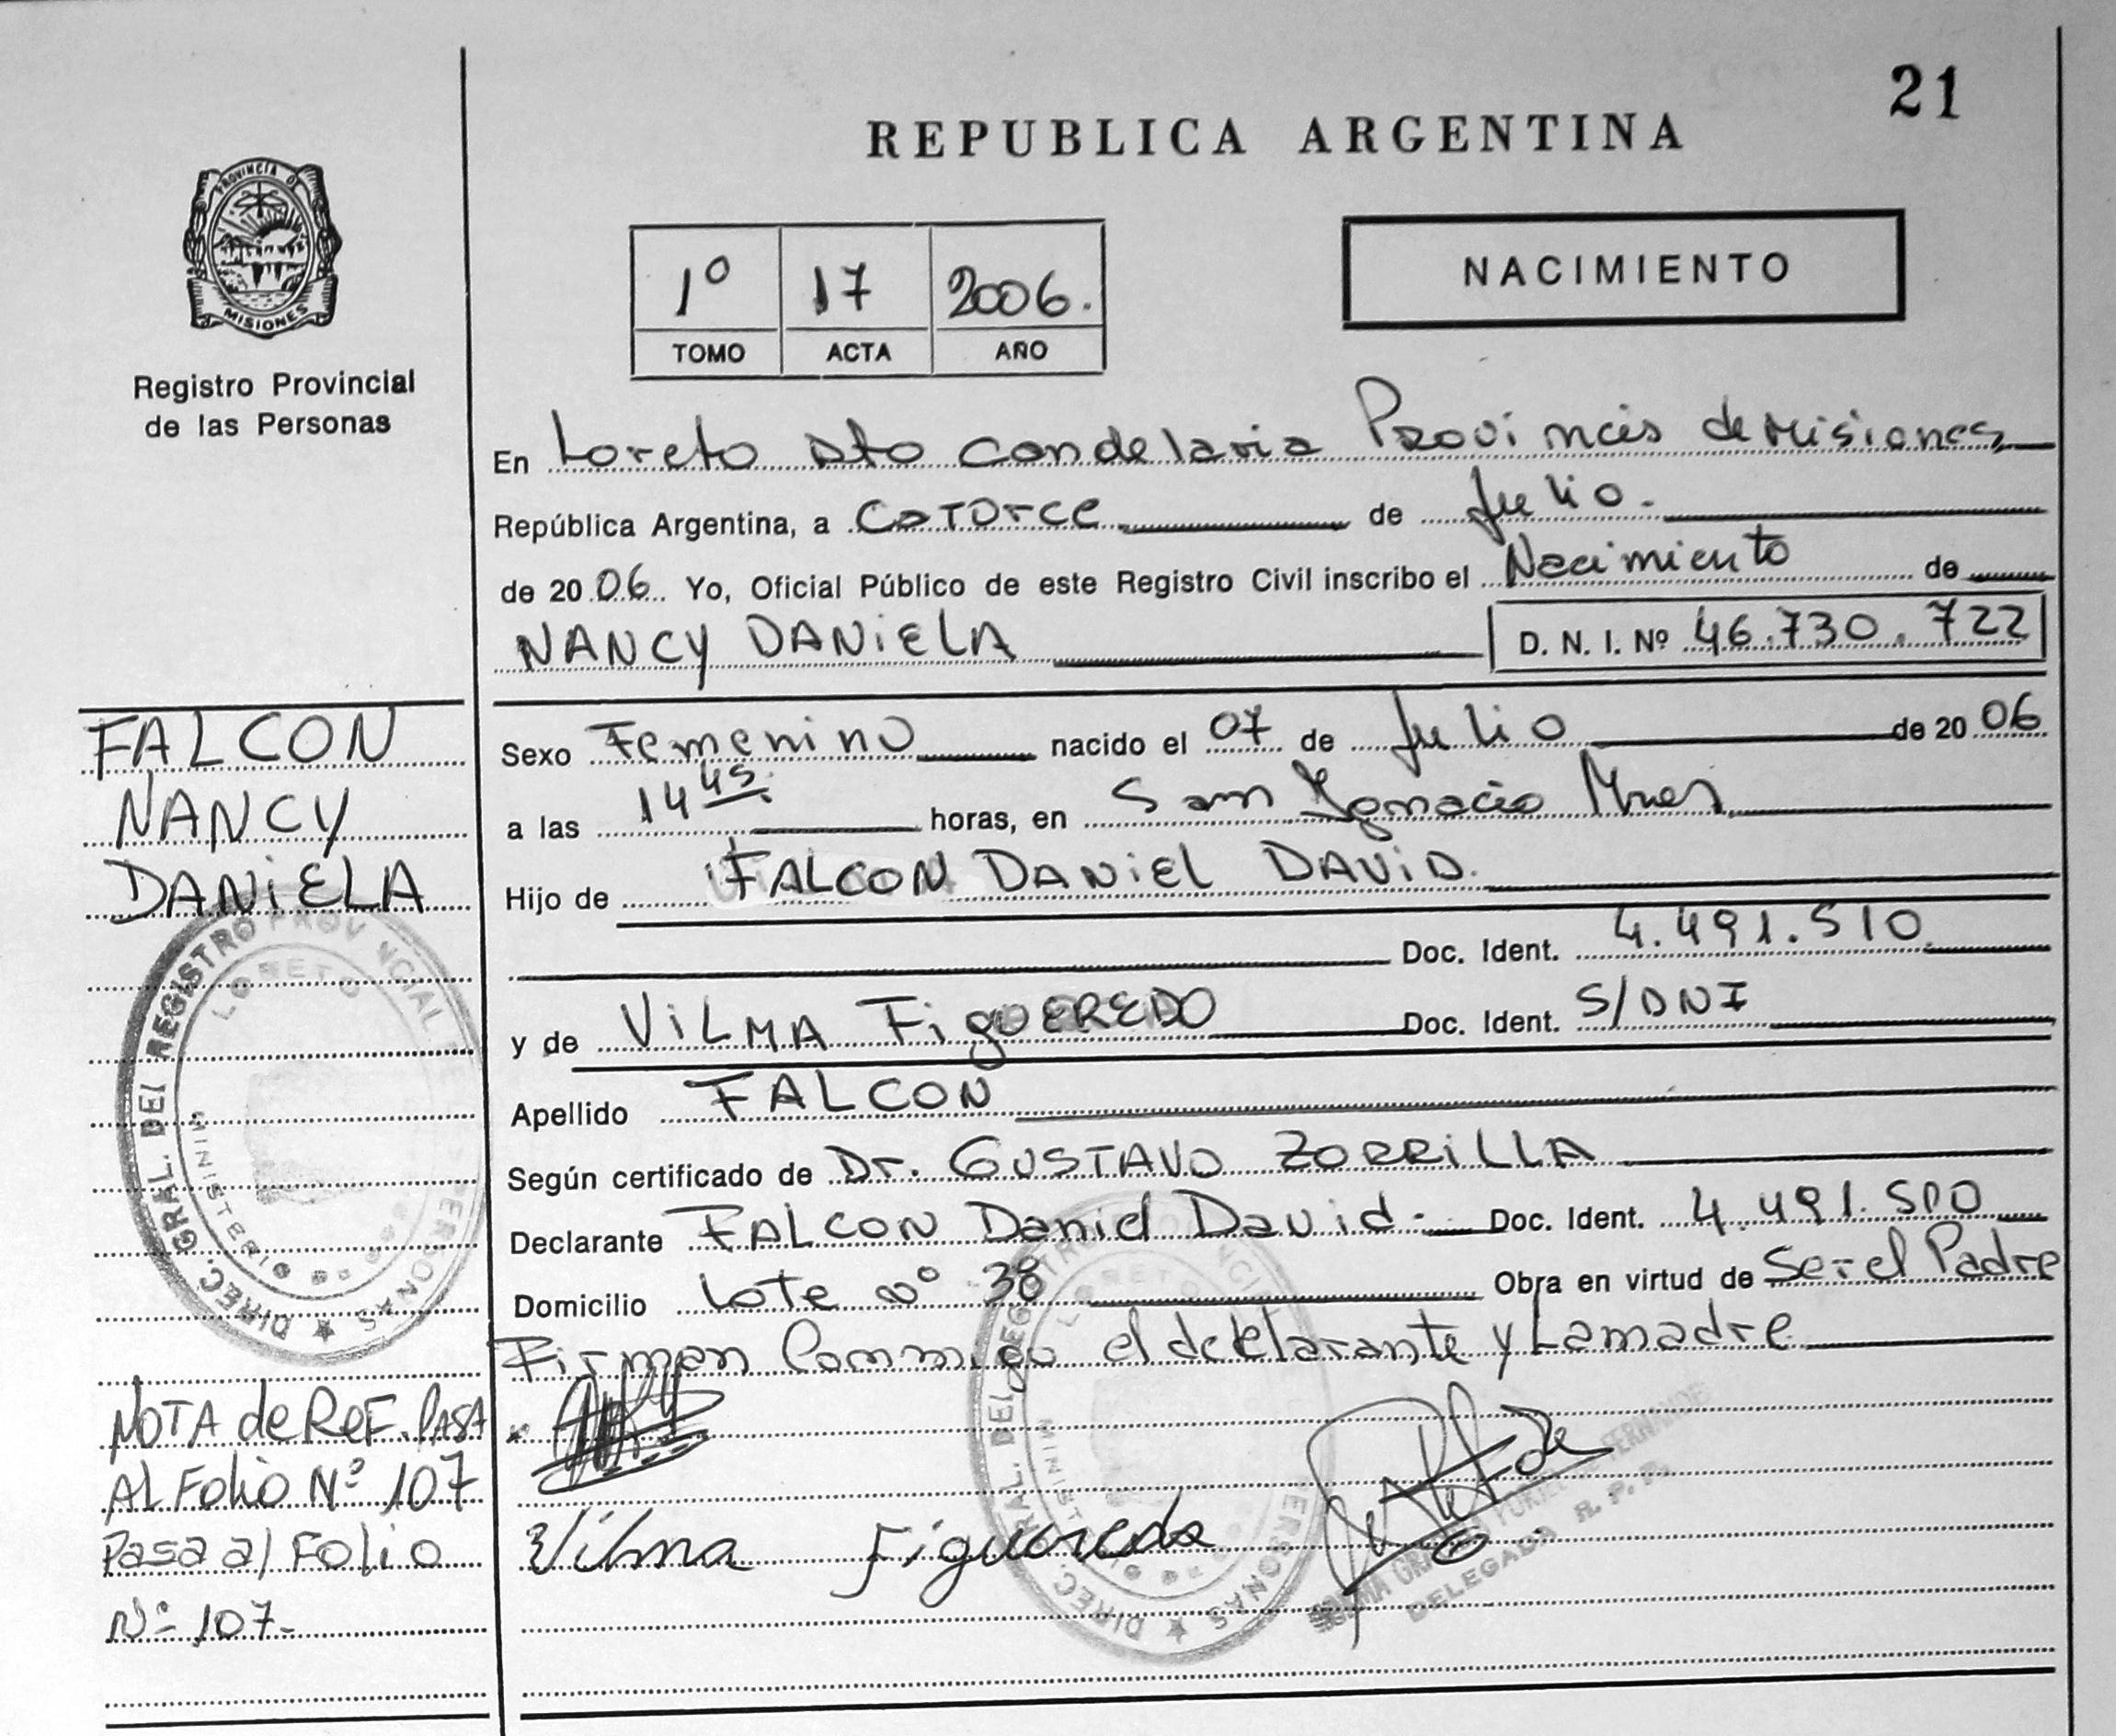 21
REPUBLICA ARGENTINA
PROVINCIA DE
MISIONES
Registro Provincial
de las Personas
1º 17 2006.
TOMO ACTA AÑO
NACIMIENTO
En Loreto Dto Candelaria Provincia de Misiones
República Argentina, a Catorce de Julio.
de 20 06 Yo, Oficial Público de este Registro Civil inscribo el Nacimiento de
NANCY DANIELA D. N. I. Nº 46.730.722
FALCON
NANCY
DANIELA
Sexo Femenino nacido el 07 de Julio de 20 06
a las 14 45 horas, en San Ignacio Mnes
Hijo de FALCON DANIEL DAVID.
Doc. Ident. 4.491.510
y de VILMA FigUEREDO Doc. Ident. S/DNI
Apellido FALCON
Según certificado de Dr. GUSTAVO ZORRILLA
Declarante FALCON Daniel David. Doc. Ident. 4.491.510
Domicilio Lote nº 38 Obra en virtud de Ser el Padre
Firman Conmigo el declarante y La madre
NOTA de REF. PASA
AL Folio Nº 107
Pasa al Folio
Nº 107-
Vilma Figueredo
DIREC. GRAL. DEL REGISTRO PROVINCIAL PERSONAS
LORETO
MINISTERIO
DIREC. GRAL. DEL REGISTRO PERSONAS
LORETO
MINISTERIO
DELEGADA R. P. P.